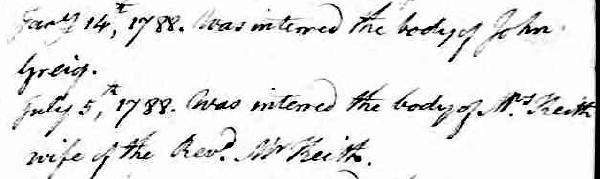 Jany 14th, 1788. Was interred the body of John
Greig.
July 5th, 1788. Was interred the body of Mrs Keith
wife of the Revd. Mr Keith.